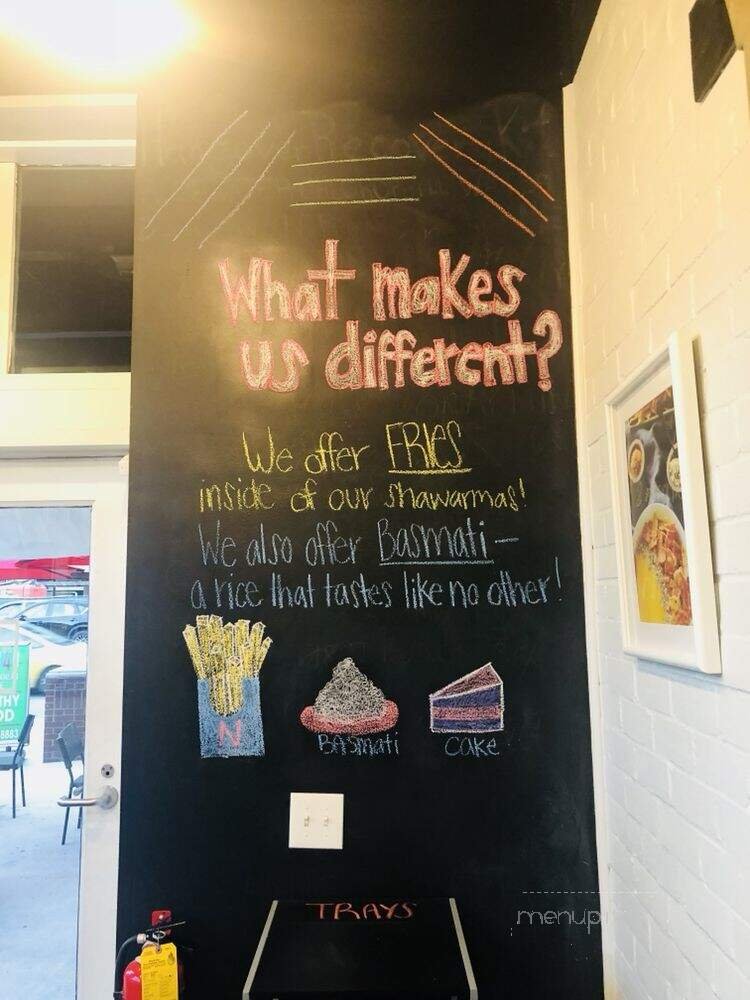 What makes
us different?
We offer FRIES
inside of our shawarmas!
We also offer Basmati—
a rice that tastes like no other!
N
BASMati
CAKE
THY
OD
8883
TRAYS
menupi